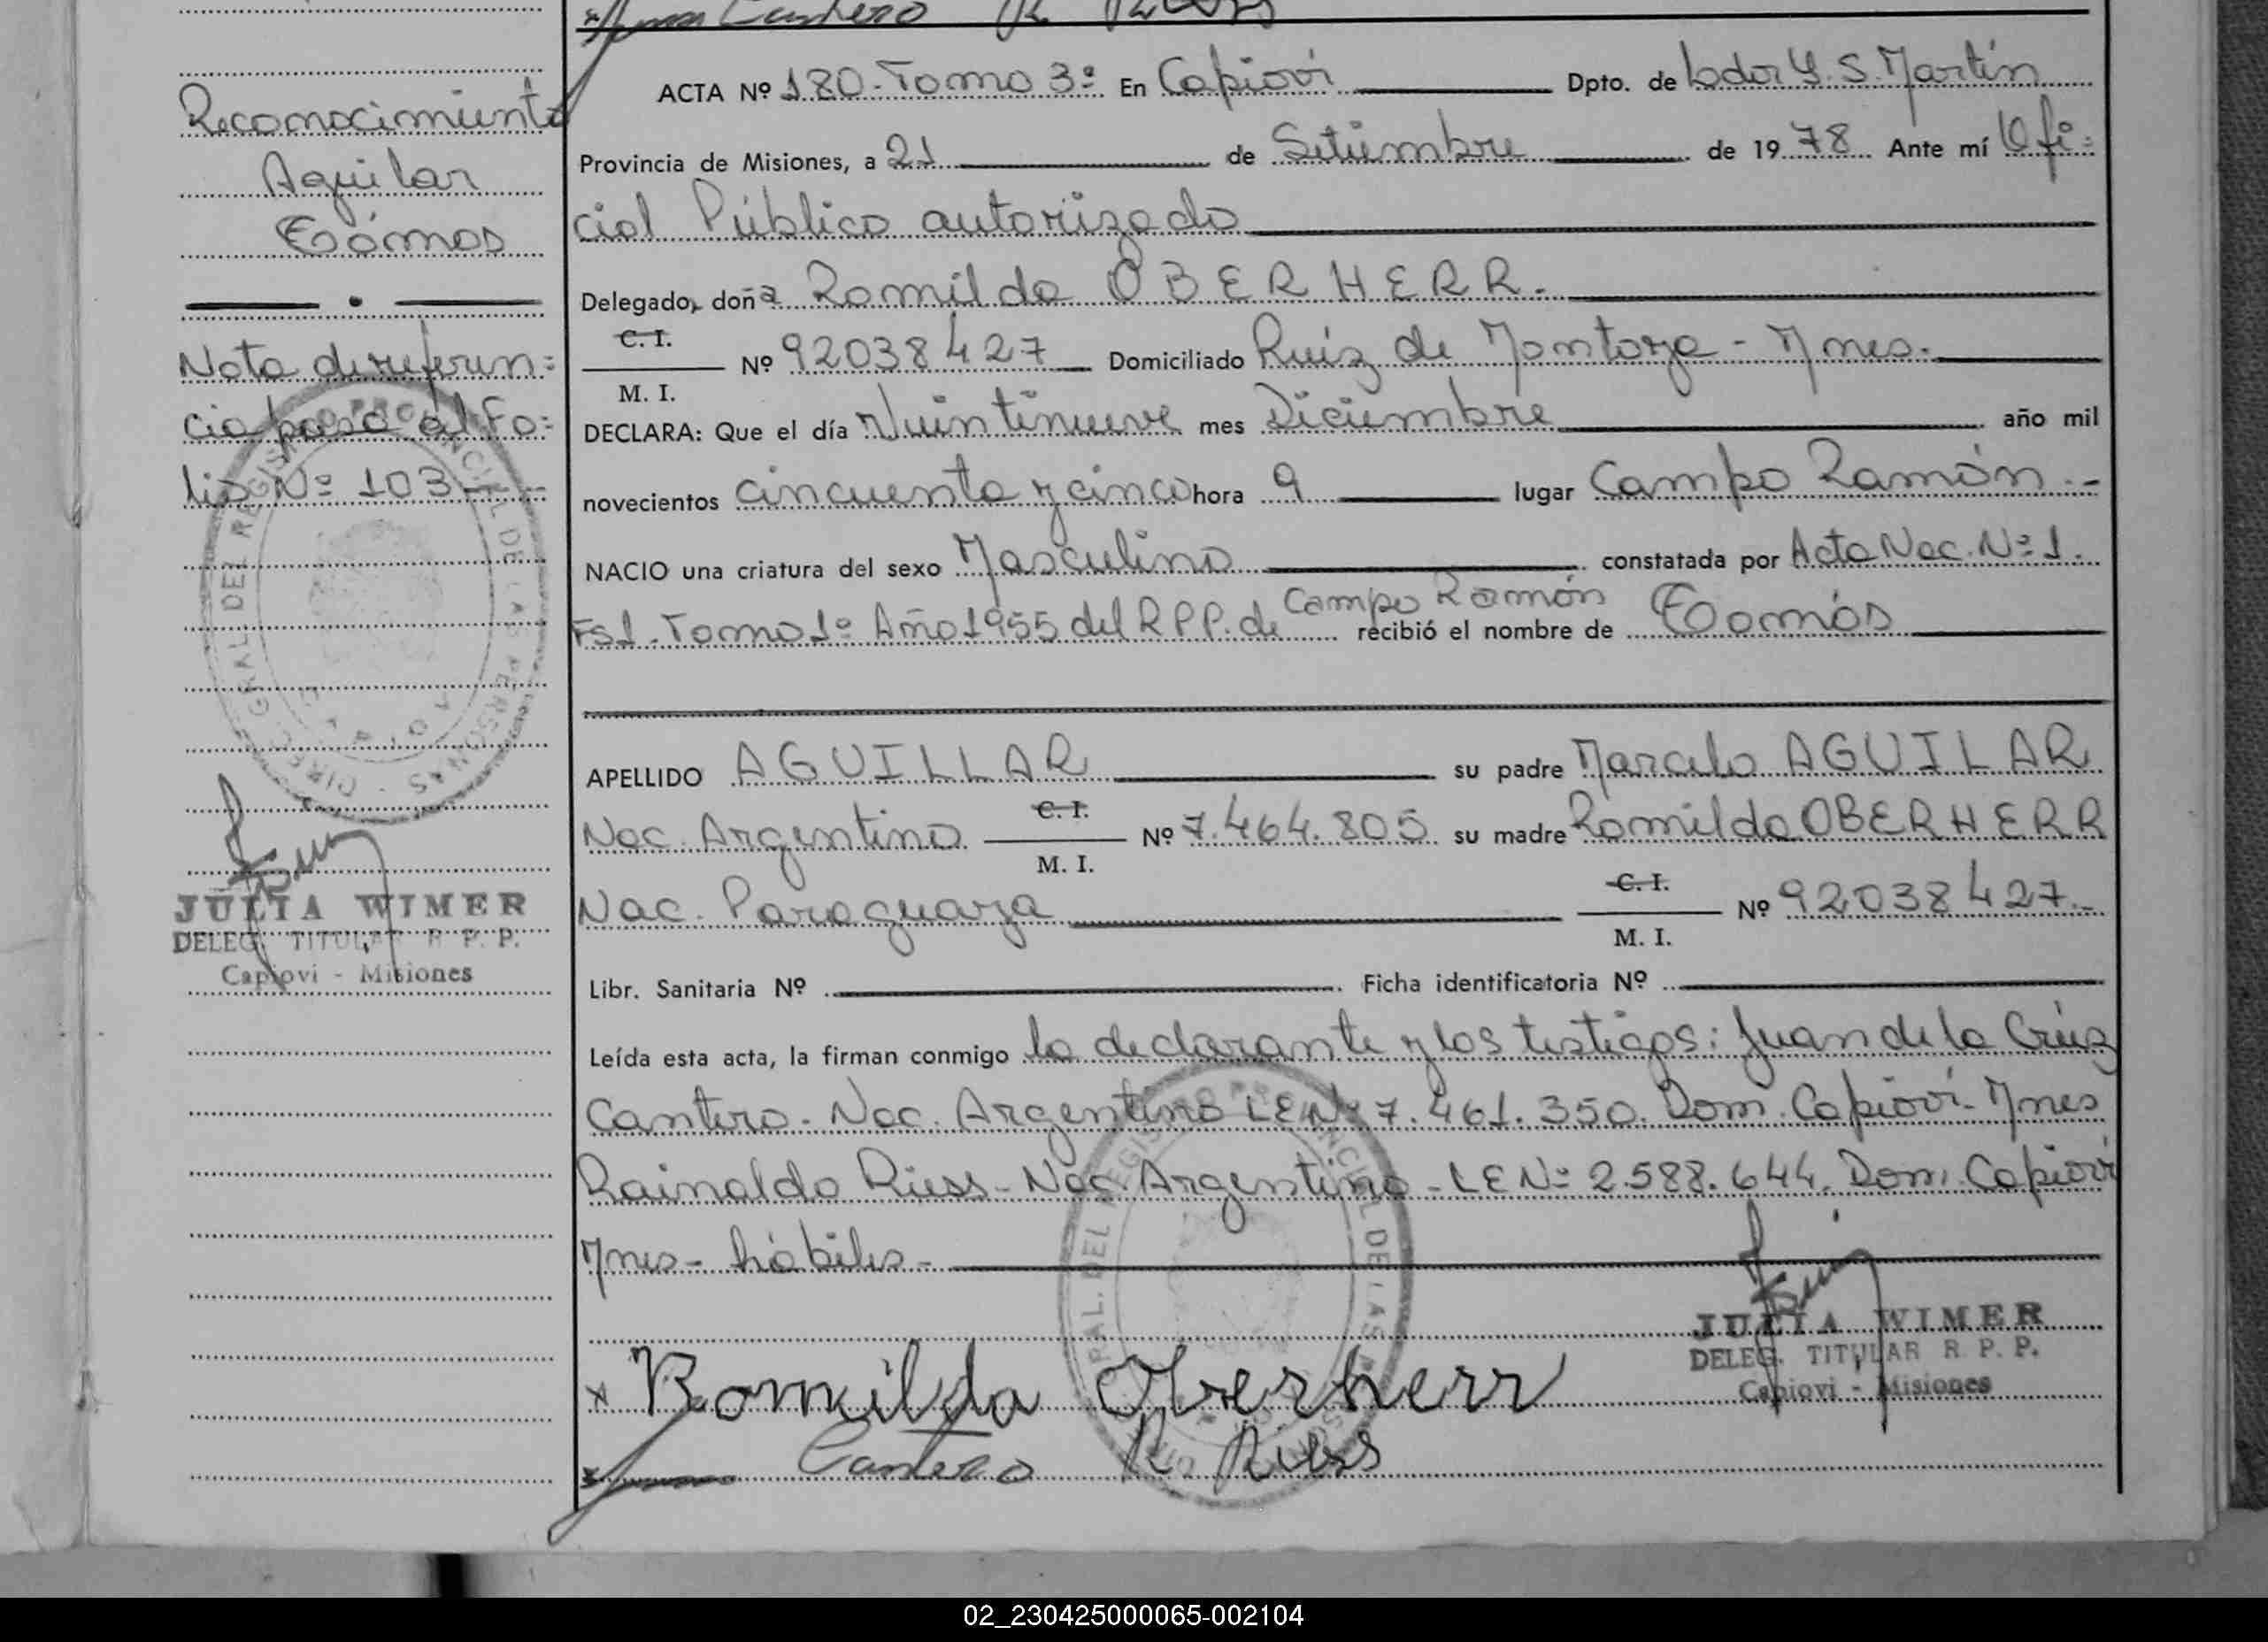 Cantero R Riess
ACTA Nº 180-Tomo 3º En Capioví Dpto. de Lbdor G. S. Martín
Provincia de Misiones, a 21 de Setiembre de 1978 Ante mí Ofi=
cial Público autorizado
Delegado, doña Romilda OBERHERR.
C. I.
M. I.
Nº 92038427 Domiciliado Ruíz de Montoya - Mnes.
DECLARA: Que el día Veintinueve mes Diciembre año mil
novecientos cincuenta y cinco hora 9 lugar Campo Ramón.-
NACIO una criatura del sexo Masculino constatada por Acta Nac. Nº 1.
Fs 1. Tomo 1º Año 1955 del R.P.P. de Campo Ramón recibió el nombre de Tomás
APELLIDO AGUILLAR su padre Marcelo AGUILAR
Nac. Argentino C. I. M. I. Nº 7.464.805 su madre Romilda OBERHERR
Nac. Paraguaya C. I. M. I. Nº 92038427.-
Libr. Sanitaria Nº Ficha identificatoria Nº
Leída esta acta, la firman conmigo la declarante y los testigos: Juan de la Crúz
Cantero. Nac. Argentino LE Nº 7.461.350. Dom. Capioví - Mnes
Rainaldo Riess - Nac. Argentino - LE Nº 2.588.644. Dom. Capioví
Mnes - hábiles -
JULIA WIMER
DELEG. TITULAR R. P. P.
Capiovi - Misiones
x Romilda Oberherr
Cantero R Riess
Reconocimiento
Aguilar
Tómas
Nota de referen=
cia pasa al Fo=
lio Nº 103
JULIA WIMER
DELEG. TITULAR R. P. P.
Capiovi - Misiones
02_230425000065-002104